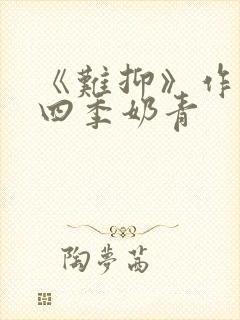 《難抑》作
四季奶青
陶夢茜